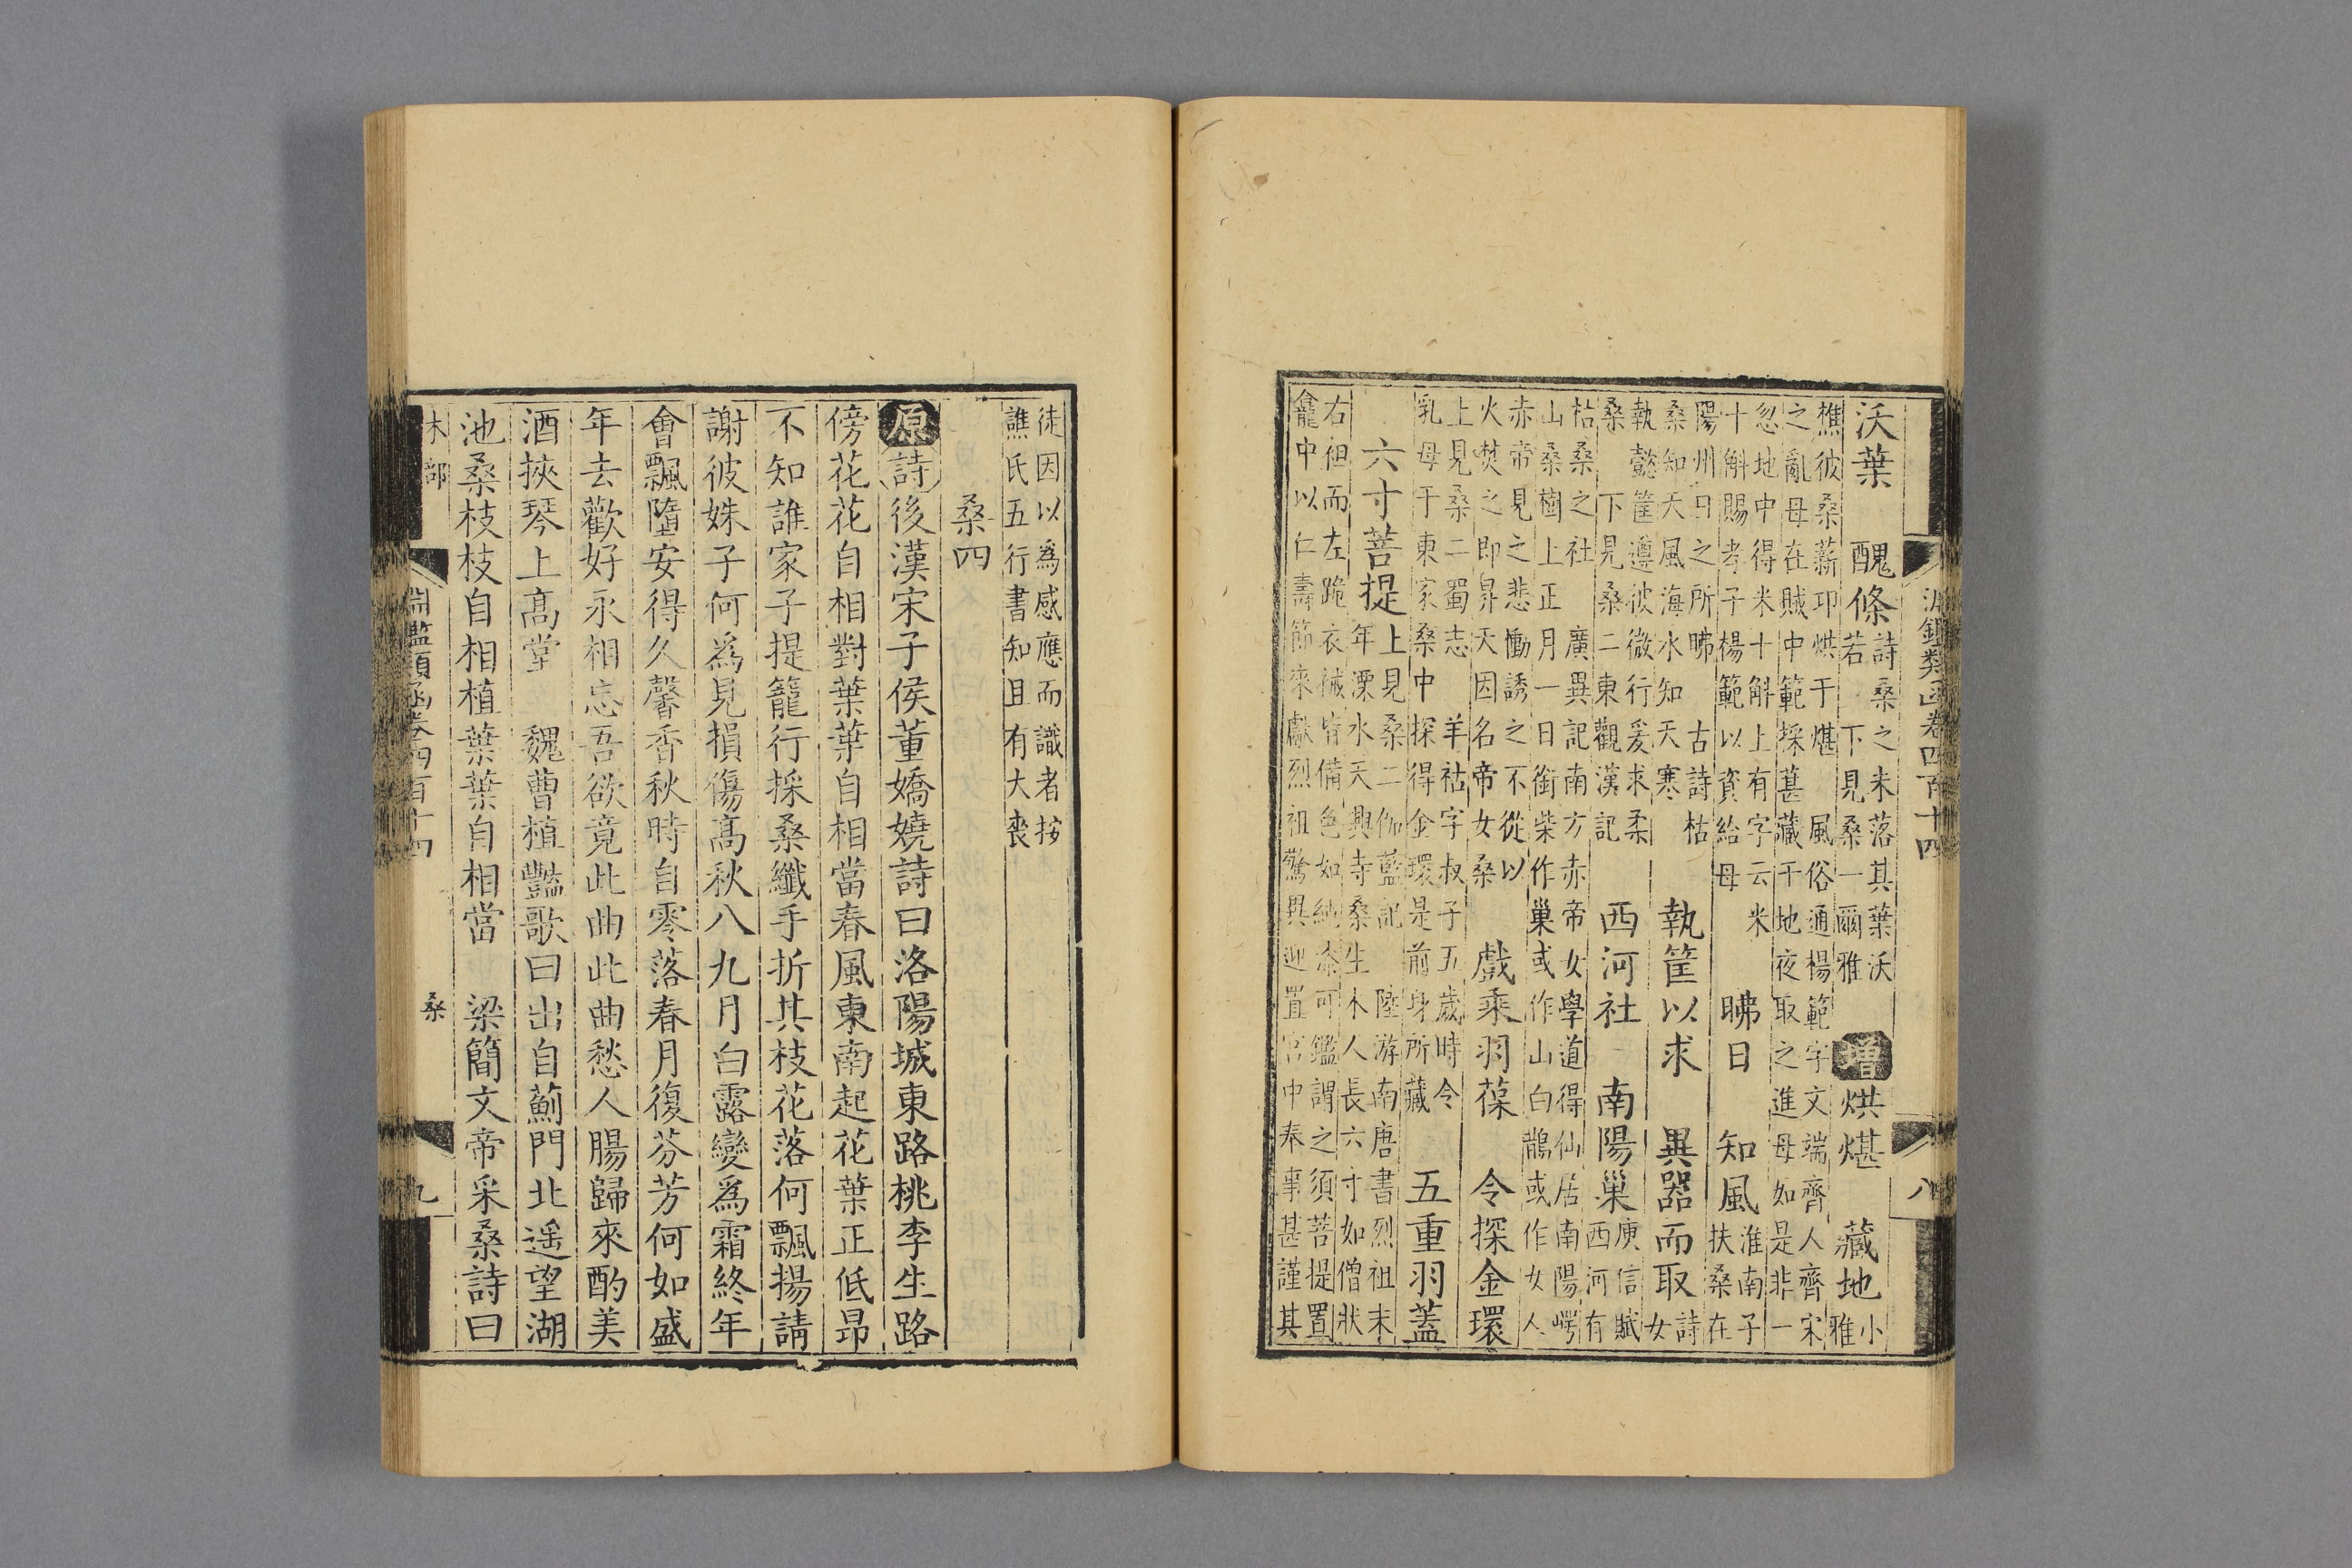 淵鑑類函卷四百十四　八
沃葉　醜條　詩桑之未落其葉沃若　下見桑一爾雅　增烘煁　藏地　小雅
樵彼桑薪卬烘于煁　風俗通楊範字文端齊人齊宋
之亂母在賊中範採葚藏于地夜取之進母如是非一
忽地中得米十斛上有字云米十斛賜孝子楊範以資給母　昲日　知風　淮南子扶桑在
陽州日之所昲　古詩枯桑知天風海水知天寒　執筐以求　異器而取　詩女
執懿筐遵彼微行爰求柔桑　下見桑二東觀漢記　西河社　南陽巢　庾信賦西河有
枯桑之社　廣異記南方赤帝女學道得仙居南陽崿
山桑樹上正月一日銜柴作巢或作山白鵲或作女人
赤帝見之悲慟誘之不從以火焚之即昇天因名帝女桑　戲乘羽葆　令探金環
上見桑二蜀志　羊祜字叔子五歲時令乳母于東家桑中探得金環是前身所藏　五重羽蓋
六寸菩提　上見桑二伽藍記　陸游南唐書烈祖末年溧水天興寺桑生木人長六寸如僧狀
右袒而左跪衣裓皆備色如純漆可鑑謂之須菩提置
龕中以仁壽節來獻烈祖驚異迎置宮中奉事甚謹其
徒因以為感應而識者按
譙氏五行書知且有大喪
桑四
原詩後漢宋子侯董嬌嬈詩曰洛陽城東路桃李生路
傍花花自相對葉葉自相當春風東南起花葉正低昂
不知誰家子提籠行採桑纖手折其枝花落何飄揚請
謝彼姝子何為見損傷高秋八九月白露變為霜終年
會飄墮安得久馨香秋時自零落春月復芬芳何如盛
年去歡好永相忘吾欲竟此曲此曲愁人腸歸來酌美
酒挾琴上高堂　魏曹植豔歌曰出自薊門北遥望湖
池桑枝枝自相植葉葉自相當　梁簡文帝采桑詩曰
木部　淵鑑類函卷四百十四　桑　九